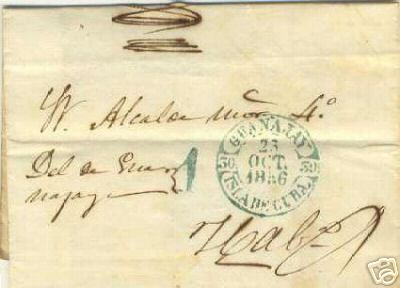 Sr. Alcalde mor. 4º
Del de Gua
najay
1
GUANAJAY
23
OCT.
1856
30 30
ISLA DE CUBA.
Habª
ebY